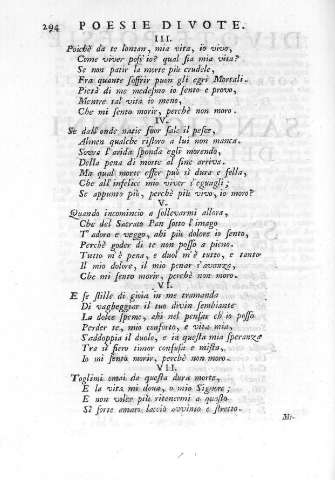 294 POESIE DIVOTE.
III.
Poichè da te lontan, mia vita, io vivo,
Come viver poss'io? qual sia mia vita?
Se non patir la morte più crudele,
Fra quante soffrir puon gli egri Mortali.
Pietà di me medesmo io sento e provo,
Mentre tal vita io meno,
Che mi sento morir, perchè non moro.
IV.
Se dall'onde natie fuor sale il pesce,
Almen qualche ristoro a lui non manca.
Sovra l'arida sponda egli morendo,
Della pena di morte al fine arriva.
Ma qual morte esser può sì dura e fella,
Che all'infelice mio viver s'eguagli;
Se appunto più, perchè più vivo, io moro?
V.
Quando incomincio a sollevarmi allora,
Che del Sacrato Pan sotto l'imago
T'adoro e veggo, ahi più dolore io sento,
Perchè goder di te non posso a pieno.
Tutto m'è pena, e duol m'è tutto, e tanto
Il mio dolore, il mio penar s'avanza,
Che mi sento morir, perchè non moro.
VI.
E se stille di gioia in me tramanda
Di vagheggiar il tuo divin sembiante
La dolce speme, ahi nel pensar ch'io posso
Perder te, mio conforto, e vita mia,
S'addoppia il duolo, e in questa mia speranza
Tra il fiero timor confusa e mista,
Io mi sento morir, perchè non moro.
VII.
Toglimi omai da questa dura morte,
E la vita mi dona, o mio Signore;
E non voler più ritenermi a questo
Sì forte amaro laccio avvinto e stretto.